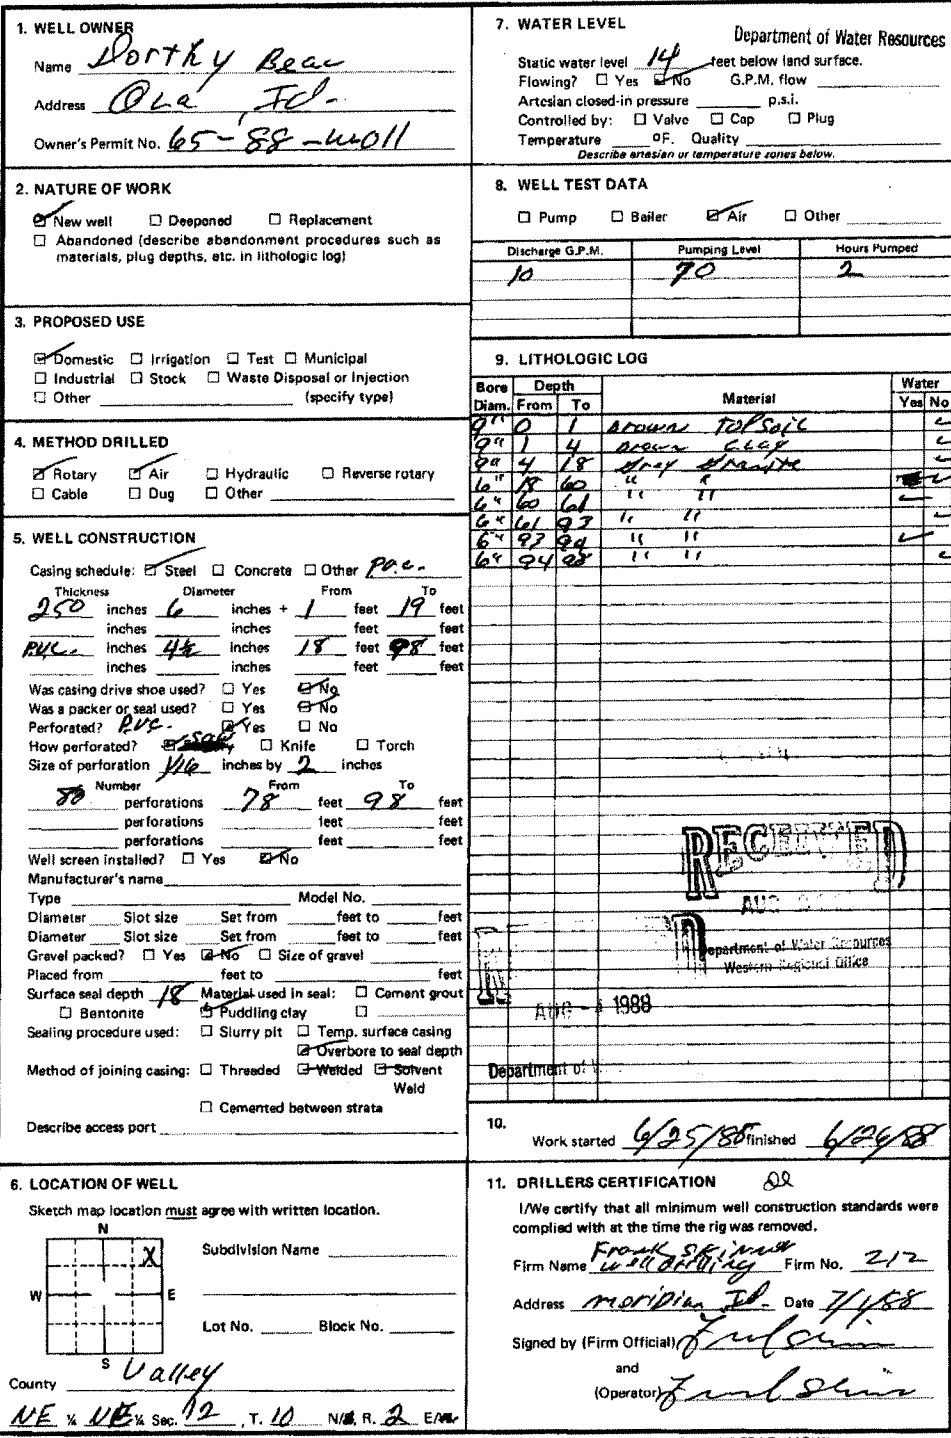 1. WELL OWNER
Name Dorthy Beac
Address Ola Id.
Owner's Permit No. 65-88-W011
2. NATURE OF WORK
☑ New well ☐ Deepened ☐ Replacement
☐ Abandoned (describe abandonment procedures such as
materials, plug depths, etc. in lithologic log)
3. PROPOSED USE
☑ Domestic ☐ Irrigation ☐ Test ☐ Municipal
☐ Industrial ☐ Stock ☐ Waste Disposal or Injection
☐ Other (specify type)
4. METHOD DRILLED
☑ Rotary ☑ Air ☐ Hydraulic ☐ Reverse rotary
☐ Cable ☐ Dug ☐ Other
5. WELL CONSTRUCTION
Casing schedule: ☑ Steel ☐ Concrete ☐ Other P.v.c.
Thickness Diameter From To
250 inches 6 inches + 1 feet 19 feet
inches inches feet feet
P.V.C. inches 4½ inches 18 feet 98 feet
inches inches feet feet
Was casing drive shoe used? ☐ Yes ☑ No
Was a packer or seal used? ☐ Yes ☑ No
Perforated? P.V.C. ☑ Yes ☐ No
How perforated? ☑ Saw ☐ Knife ☐ Torch
Size of perforation 1/16 inches by 2 inches
Number From To
80 perforations 78 feet 98 feet
perforations feet feet
perforations feet feet
Well screen installed? ☐ Yes ☑ No
Manufacturer's name
Type Model No.
Diameter Slot size Set from feet to feet
Diameter Slot size Set from feet to feet
Gravel packed? ☐ Yes ☑ No ☐ Size of gravel
Placed from feet to feet
Surface seal depth 18 Material used in seal: ☐ Cement grout
☐ Bentonite ☑ Puddling clay ☐
Sealing procedure used: ☐ Slurry pit ☐ Temp. surface casing
☑ Overbore to seal depth
Method of joining casing: ☐ Threaded ☑ Welded ☑ Solvent
Weld
☐ Cemented between strata
Describe access port
6. LOCATION OF WELL
Sketch map location must agree with written location.
N
X
W E
S
Subdivision Name
Lot No. Block No.
County Valley
NE ¼ NE ¼ Sec. 12, T. 10 N/S, R. 2 E/W
7. WATER LEVEL
Department of Water Resources
Static water level 14 feet below land surface.
Flowing? ☐ Yes ☑ No G.P.M. flow
Artesian closed-in pressure p.s.i.
Controlled by: ☐ Valve ☐ Cap ☐ Plug
Temperature °F. Quality
Describe artesian or temperature zones below.
8. WELL TEST DATA
☐ Pump ☐ Bailer ☑ Air ☐ Other
Discharge G.P.M. Pumping Level Hours Pumped
10 90 2
9. LITHOLOGIC LOG
Bore Depth Water
Diam. From To Material Yes No
9" 0 1 Brown TOPSoil ✓
9" 1 4 Brown CLAY ✓
9" 4 18 Gray Granite ✓
6" 18 60 " " ✓
6" 60 61 " " ✓
6" 61 93 " " ✓
6" 93 94 " " ✓
6" 94 98 " " ✓
RECEIVED
AUG
Department of Water Resources
Western Regional Office
AUG - 1988
Department of W
10.
Work started 6/25/88 finished 6/26/88
11. DRILLERS CERTIFICATION
I/We certify that all minimum well construction standards were
complied with at the time the rig was removed.
Frank Skinner
Firm Name well drilling Firm No. 212
Address meridian Id. Date 7/1/88
Signed by (Firm Official)
and
(Operator)